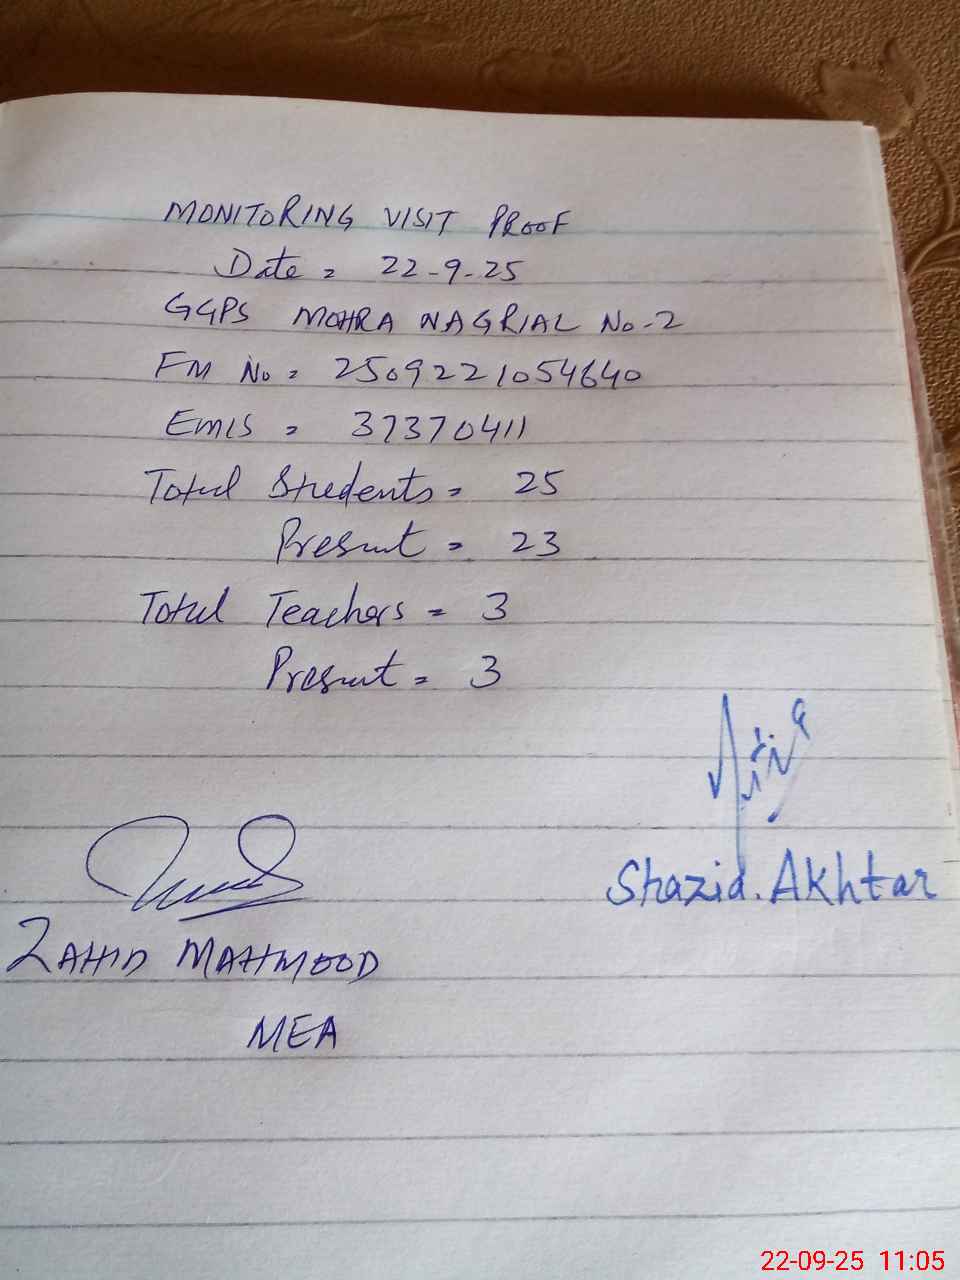 MONITORING VISIT PROOF
Date = 22-9-25
GGPS MOHRA NAGRIAL No-2
FM No = 2509221054640
EMIS = 37370411
Total Students = 25
Present = 23
Total Teachers = 3
Present = 3
Shazid. Akhtar
ZAHID MAHMOOD
MEA
22-09-25 11:05